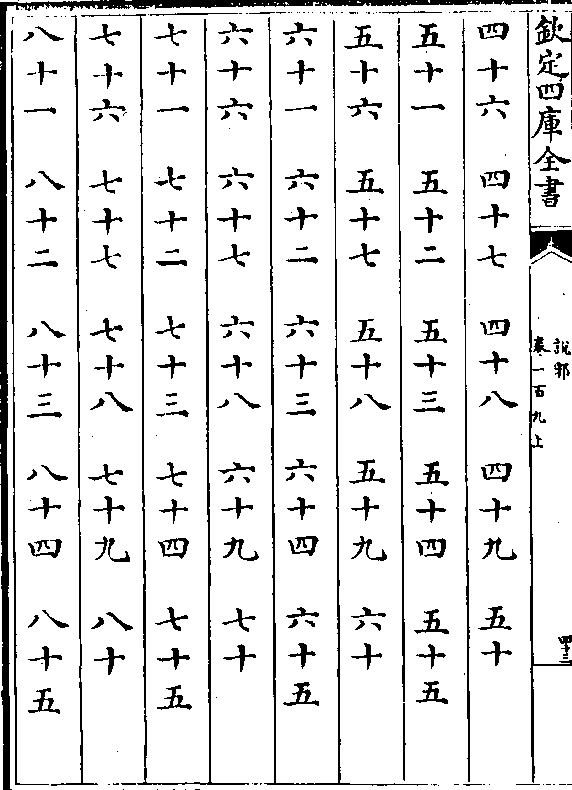 欽定四庫全書
說郛
卷一百九上
四十三
四十六 四十七 四十八 四十九 五十
五十一 五十二 五十三 五十四 五十五
五十六 五十七 五十八 五十九 六十
六十一 六十二 六十三 六十四 六十五
六十六 六十七 六十八 六十九 七十
七十一 七十二 七十三 七十四 七十五
七十六 七十七 七十八 七十九 八十
八十一 八十二 八十三 八十四 八十五